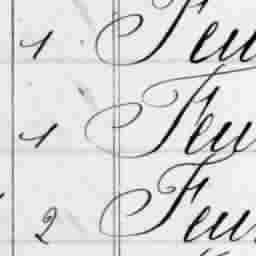 1 Feu
1 Feu
2 Feu